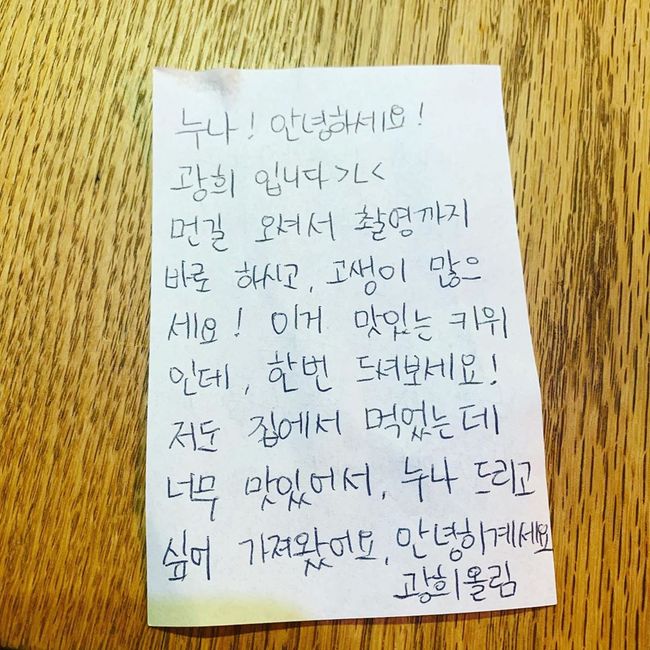 누나! 안녕하세요!
광희 입니다>L<
먼길 오셔서 촬영까지
바로 하시고, 고생이 많으
세요! 이거 맛있는 키위
인데, 한번 드셔보세요!
저도 집에서 먹었는데
너무 맛있어서, 누나 드리고
싶어 가져왔어요, 안녕히계세요
광희올림